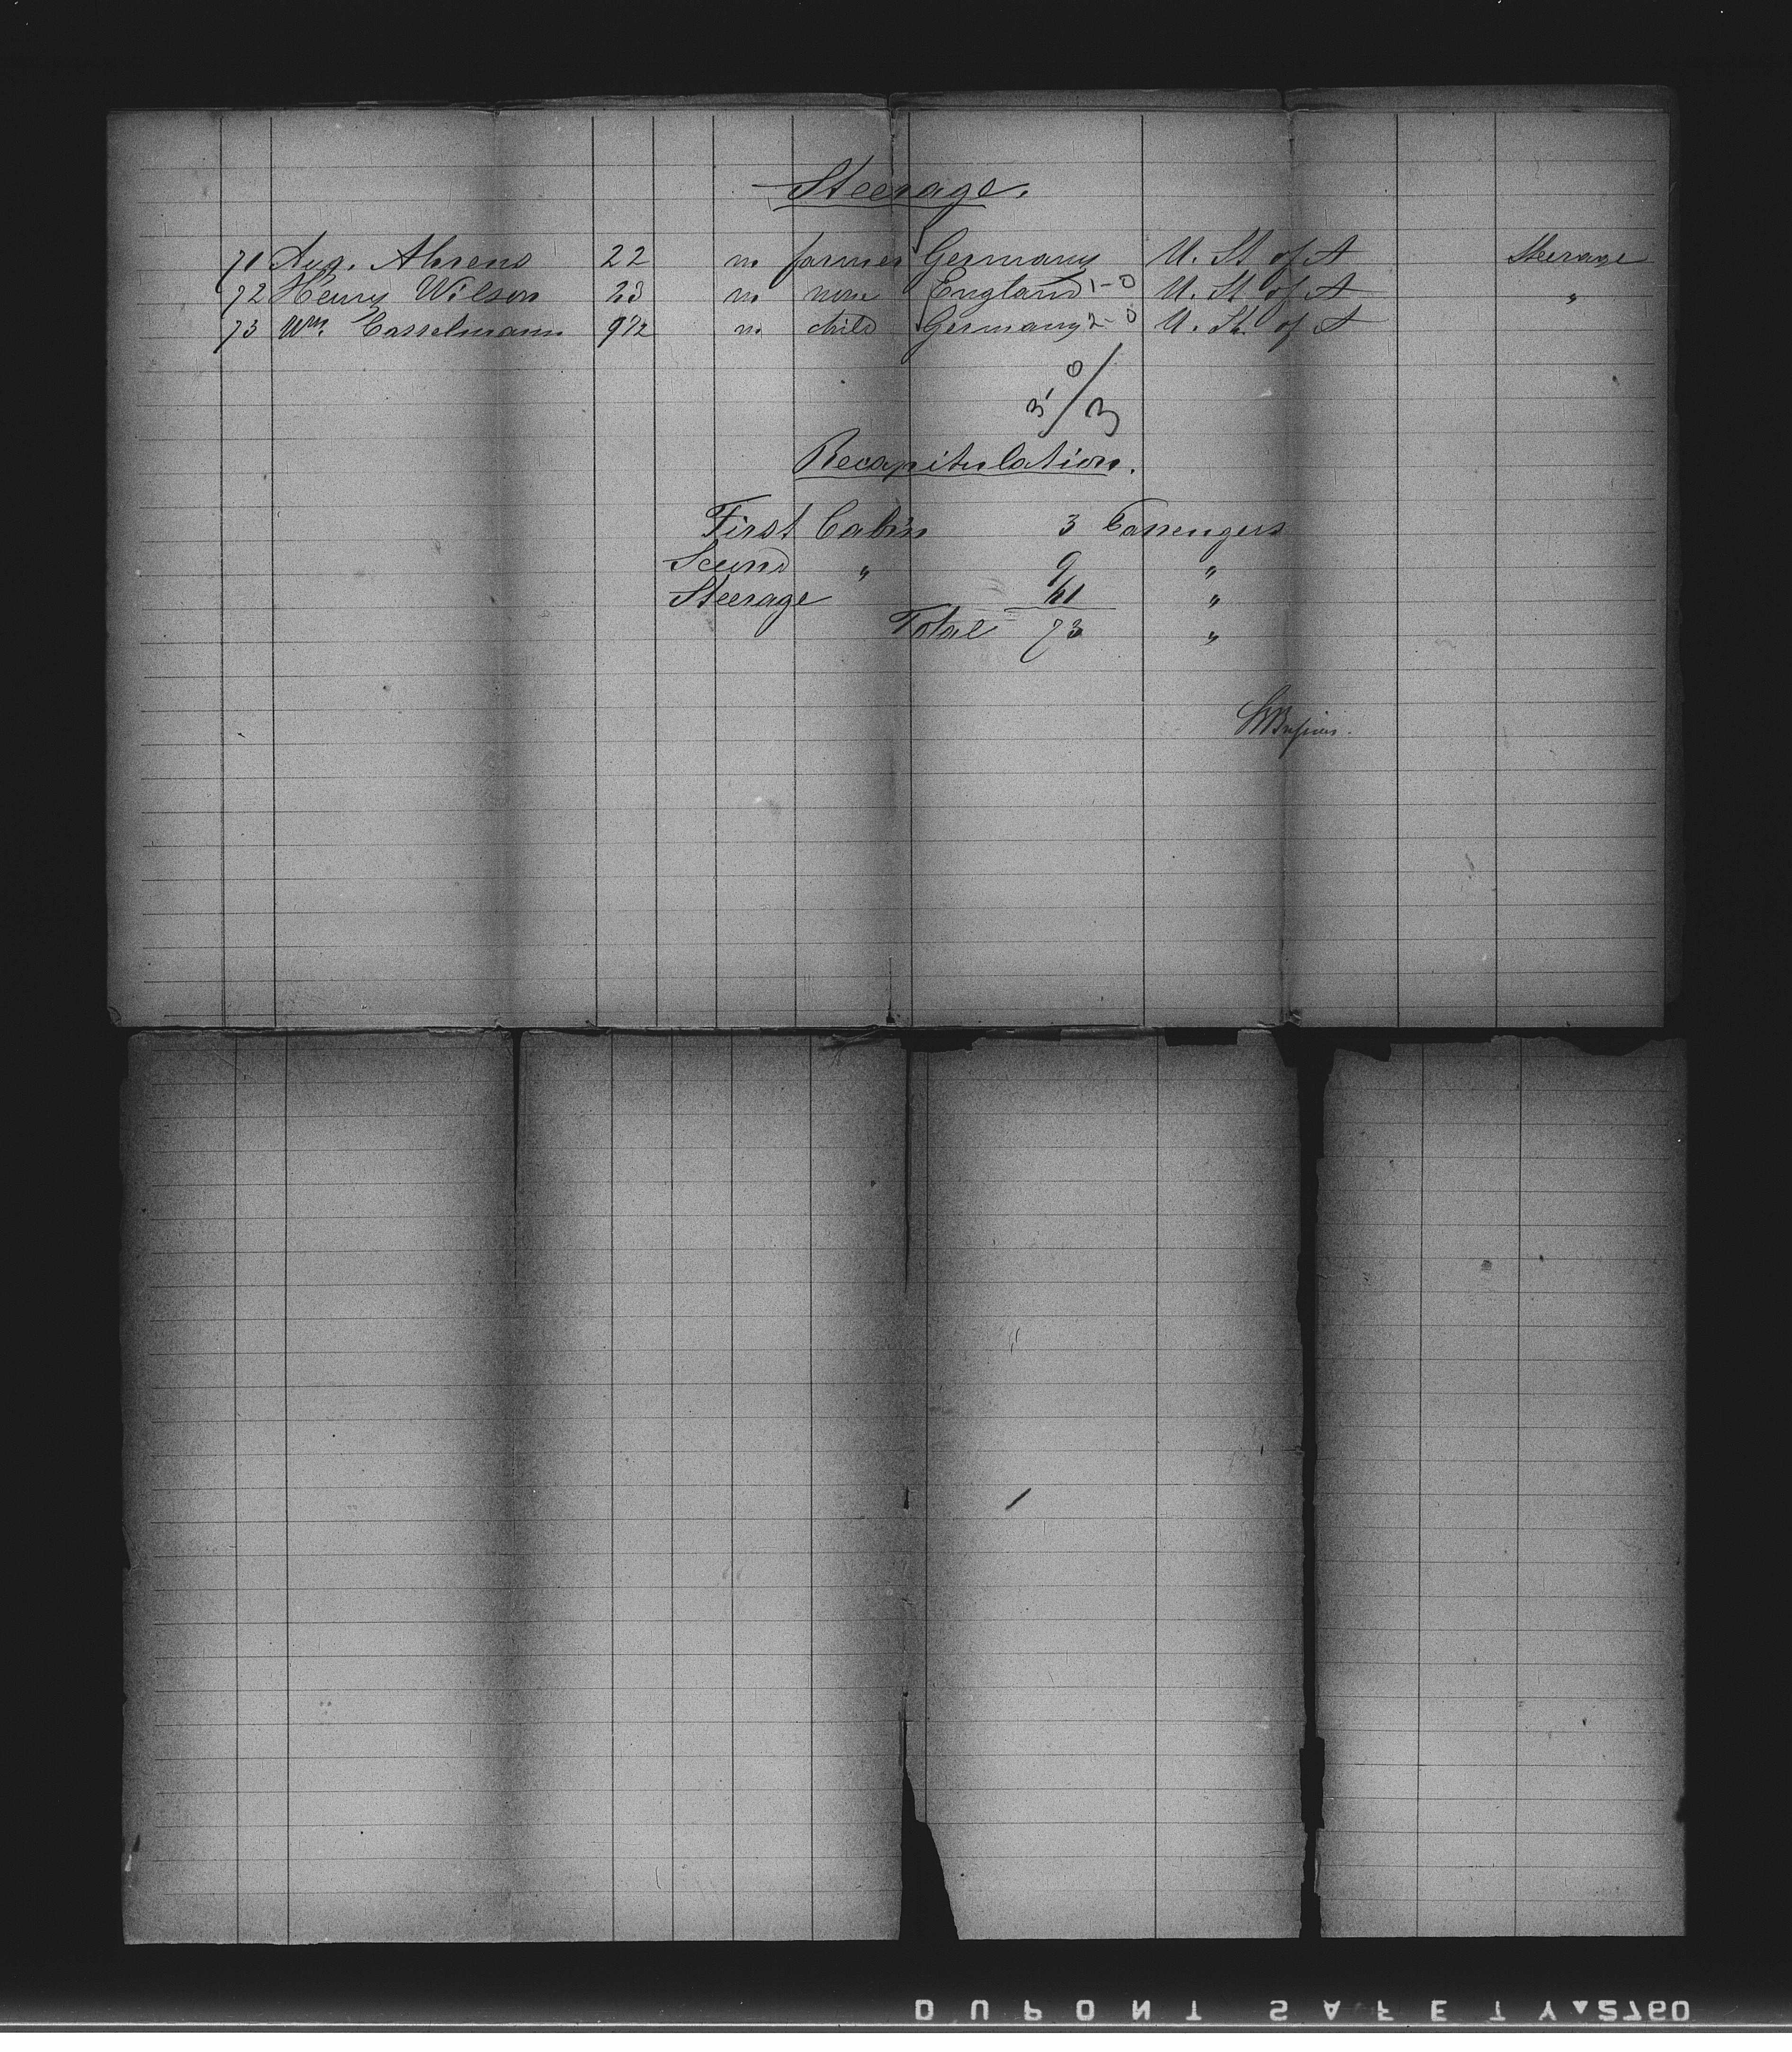 Steerage.
71 Aug. Ahrens 22 m farmer Germany U. St. of A Steerage
72 Henry Wilson 23 m none England 1-0 U. St. of A "
73 Wm. Casselmann 9 1/2 m child Germany 2-0 U. St. of A
0
3 / 3
Recapitulation.
First Cabin 3 Passengers
Second " 9 "
Steerage 61 "
Total 73 "
DUPONT SAFETY 2760